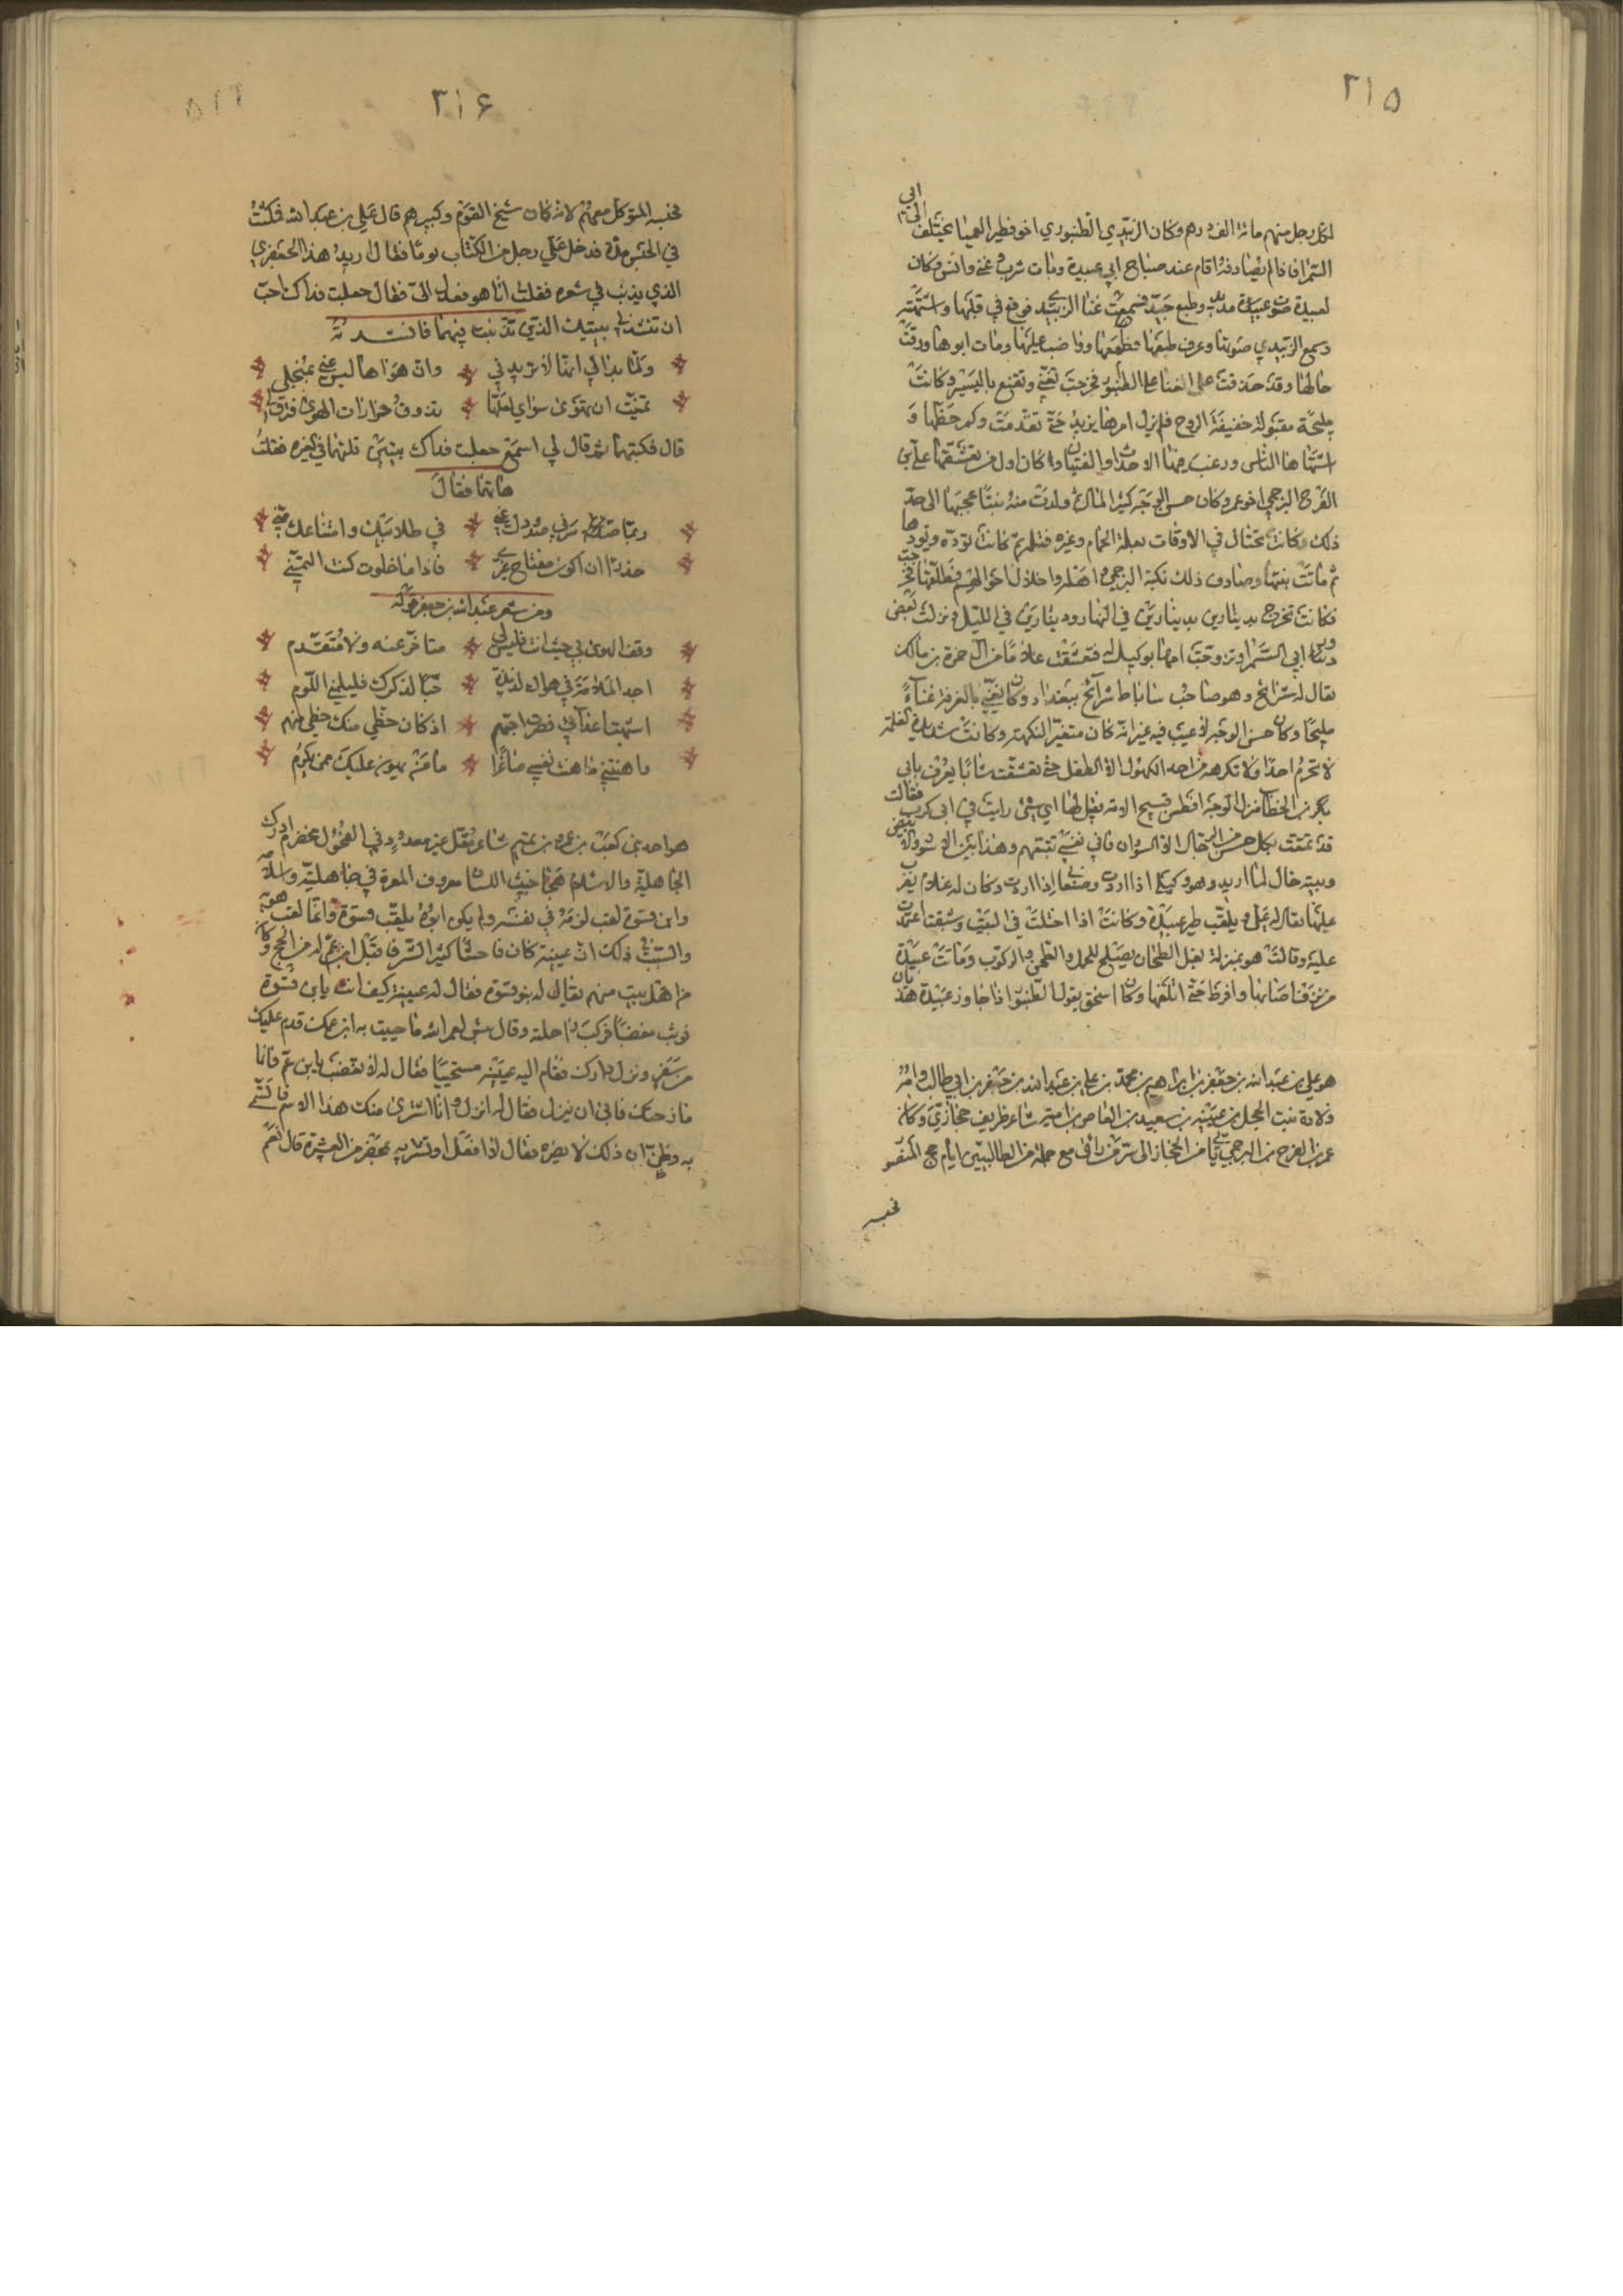 ٣١٥
لكل رجل منهم مائة الف درهم وكان الزبيدي الطنبوري اخو نظير العميا يختلف الى ابي
السمرا فان لم يصادفه اقام عند صباح ابي عبيدة وبات شرب وغنى وانس وكان
لعبيدة صوت جيد وطبع جيد فسمعت غنا الزبيدي فوقع في قلبها واشتهته
وسمع الزبيدي صوتها وعرف طبعها فطمعها وواضب عليها ومات ابوها ورقت
حالها وقد حذقت على الغنا على الطنبور فخرجت تغني وتقنع باليسير وكانت
مليحة مقبولة خفيفة الروح فلم يزل امرها يزيد حتى تقدمت وكبر حظها و
اشتهاها الناس ورغب فيها الاحداث والفتيان وكان اول من تعشقها علي بن
الفرج الرجحي اخو عمر وكان حسن الوجه كثير المال ثم ولدت منه بنتا فحجبها الى حد
ذلك وكانت تحتال في الاوقات بعلة الحمام وغيره فتلم بمن كانت توده ويودها
ثم ماتت بنتها وصادف ذلك نكبة الرجحي واهله واختلال احوالهم فطلقها فخرجت
فكانت تخرج بدينارين بدينارين في النهار ودينارين في الليل ونزلت بعض
دور ابي السمرا وتزوجت امها بوكيل له فتعشقت غلاما من آل حمزة بن مالك
يقال له شرائح وهو صاحب ساباط شرائح ببغداد وكان يغني بالمعزفة غناءً
مليحا وكان حسن الوجه لا عيب فيه غير انه كان متغير النكهة وكانت شديدة الغلمة
لا تحرم احدا ولا تكرهه من احد الكهول الى الطفل حتى تعشقت شابا يعرف بابي
كرب بن الخطاب منزل الوجه افطس قبيح الادمة فقيل لها اي شئ رايت في ابي كرب فقالت
قد تمتعت بكل جنس من الرجال الا السودان فان نفسي تبشعهم وهذا بين الاسود والابيض
وبيته خال لما اريد وهو وكيلي اذا اردت وصفعا اذا اردت وكان لها غلام يضرب
عليها يقال له علي ويلقب ظهر عبيدة وكانت اذا اختلت في البيت وشبقت اعتمدت
عليه وقالت هو بمنزلة بغل الطحان يصلح للحمل والطحن والركوب وماتت عبيدة
من نزف اصابها وافرط حتى اتلفها وكان اسحق يقول الطنبور اذا جاوز عبيدة هذيان
هو علي بن عبد الله بن جعفر بن ابراهيم بن محمد بن علي بن عبد الله بن جعفر بن ابي طالب وامه
ولادة بنت الحجل بن عيينة بن سعيد بن العاص بن امية شاعر ظريف حجازي وكان
عمر بن الفرج الرجحي حمله من الحجاز الى سر من رآى مع حملة من الطالبيين ايام حج المنتصر
فحبسه
٣١٦
فحبسه المتوكل معهم لانه كان شيخ القوم وكبيرهم قال علي بن عبد الله فمكثت
في الحبس مدة فدخل علي رجل من الكتاب يوما فقال اريد هذا الجعفري
الذي يذنب في شعره فقلت انا هو فعدل الي فقال جعلت فداك احب
ان تنشدني بيتيك الذي تذنبت فيهما فانشدته
ولما بدا لي انها لا تريدني * وان هواها ليس عني بمنجلي
تمنيت ان تهوى سواي لعلها * تذوق حرارات الهوى فترق لي
قال فكتبهما ثم قال لي اسمع جعلت فداك بيتين قلتهما في الغيرة فقلت
هاتهما فقال
ربما سرني صدودك عني * في طلابيك وامتناعك مني
حذرا ان اكون مفتاح غيري * فاذا ما خلوت كنت التمني
ومن شعر عبد الله بن جعفر قوله
وقف الهوى بي حيث انت فليس لي * متاخر عنه ولا متقدم
اجد الملامة في هواك لذيذة * حبا لذكرك فليلمني اللوم
اشبهت اعدائي فصرت احبهم * اذ كان حظي منك حظي منهم
واهنتني فاهنت نفسي صاغرا * ما من يهون عليك ممن يكرم
هو احد بني كعب بن عمرو بن تميم شاعر مقل غير معدود في الفحول مخضرم ادرك
الجاهلية والاسلام هجا خبيث اللسان معروف المعرة في جاهليته واسلامه
وابن فسوة لقب لزمه في نفسه ولم يكن ابوه يلقب فسوة وانما لقب هو به
والسبب في ذلك ان عيينة كان فاحشا كثير الشر فاقبل ابن عم له من الحج وكان
من اهل بيت منهم يقال له بنو فسوة فقال له عيينة كيف انت يا ابن فسوة
فوثب مغضبا فركب راحلته وقال بئس لعمر الله ما حييت به ابن عمك قدم عليك
من سفر ونزل دارك فقام اليه عيينة مستحييا فقال له لا تغضب يا ابن عم فانما
مازحتك فابى ان ينزل فقال له انزل وانا اشترى منك هذا الاسم فاتسمى
به وظن ان ذلك لا يضره فقال لا افعل او تشتريه بمحضر من العشيرة قال نعم